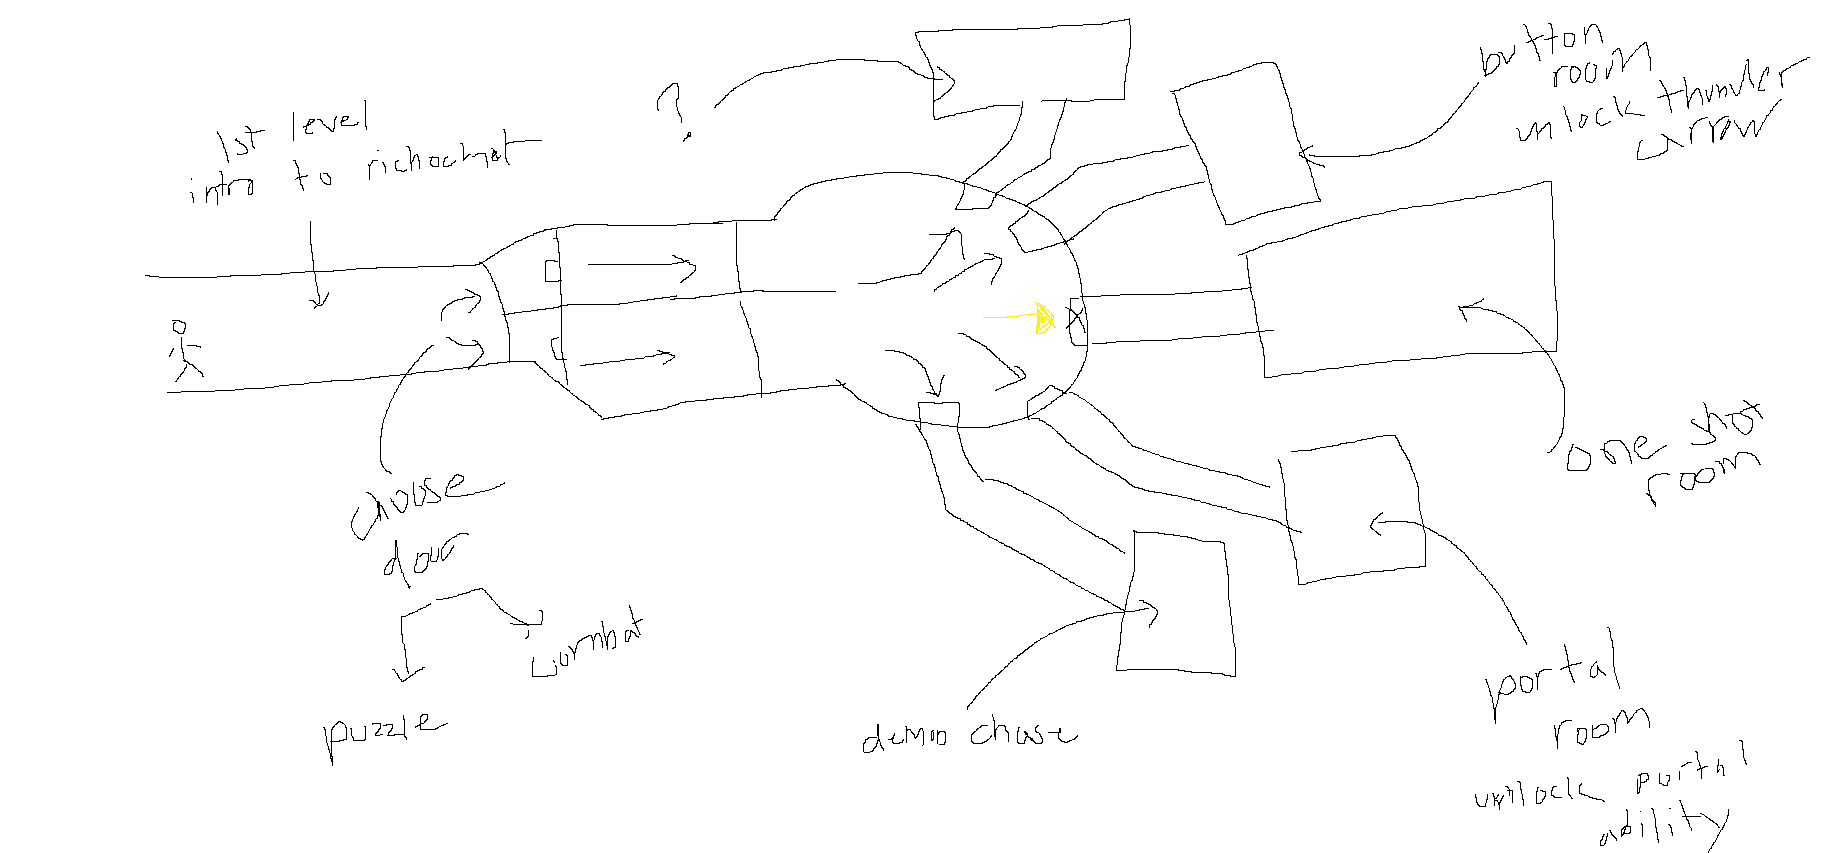 1st level
intro to richochet
?
button
room
unlock thunder
arrow
choose
door
puzzle
combat
one shot
room
demon chase
portal
room
unlock portal
ability